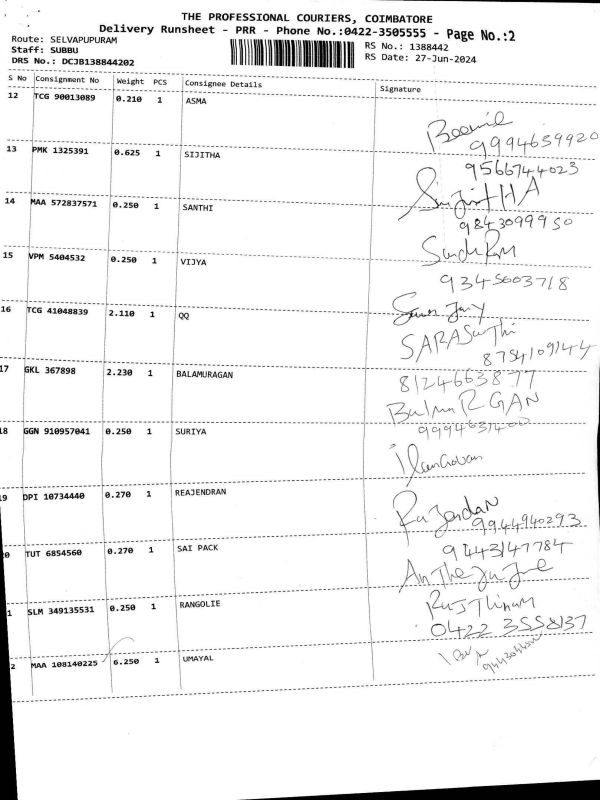 THE PROFESSIONAL COURIERS, COIMBATORE
Delivery Runsheet - PRR - Phone No.:0422-3505555 - Page No.:2
Route: SELVAPUPURAM
Staff: SUBBU
DRS No.: DCJB138844202
RS No.: 1388442
RS Date: 27-Jun-2024
S No Consignment No Weight PCS Consignee Details Signature
12 TCG 90013089 0.210 1 ASMA
9994659920
13 PMK 1325391 0.625 1 SIJITHA
9566744023
14 MAA 572837571 0.250 1 SANTHI
9843099950
15 VPM 5404532 0.250 1 VIJYA
9345603718
16 TCG 41048839 2.110 1 QQ
8754109144
17 GKL 367898 2.230 1 BALAMURAGAN
8124663877
8 GGN 910957041 0.250 1 SURIYA
9994631400
9 DPI 10734440 0.270 1 REAJENDRAN
RaJendan
9944940293
0 TUT 6854560 0.270 1 SAI PACK
9443147784
1 SLM 349135531 0.250 1 RANGOLIE
0422 3558137
2 MAA 108140225 6.250 1 UMAYAL